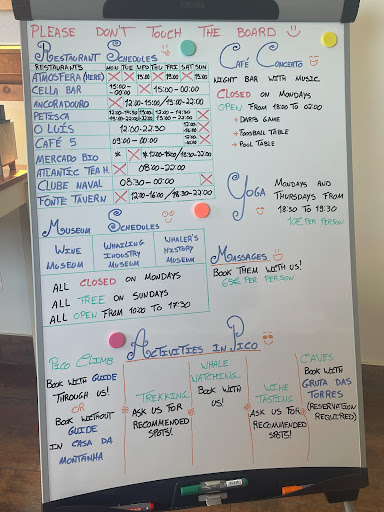 PLEASE DON'T TOUCH THE BOARD
RESTAURANT SCHEDULES
RESTAURANTS MON TUE WED THU FRI SAT SUN
ATMOSFERA (HERE) X X 19:00 X 19:00 X 19:00
CELLA BAR 15:00-00:00 X 15:00-00:00
ANCORADOURO X 12:00-15:00/19:00-22:00
PETISCA
O LUÍS 12:00-22:30 X
CAFÉ 5 09:00-00:00 X
MERCADO BIO
ATLANTIC TEA H. X 08:00-22:00
CLUBE NAVAL 08:30-00:00 X
FONTE TAVERN X 12:00-16:00/18:30-22:00
CAFÉ CONCERTO
NIGHT BAR WITH MUSIC
CLOSED ON MONDAYS
OPEN FROM 18:00 TO 02:00
→ DARTS GAME
→ FOOSBALL TABLE
→ POOL TABLE
YOGA
MONDAYS AND
THURSDAYS FROM
18:30 TO 19:30
10€ PER PERSON
MUSEUM SCHEDULES
WINE MUSEUM
WHALING INDUSTRY MUSEUM
WHALER'S HISTORY MUSEUM
ALL CLOSED ON MONDAYS
ALL FREE ON SUNDAYS
ALL OPEN FROM 10:00 TO 17:30
MASSAGES
BOOK THEM WITH US!
65€ PER PERSON
ACTIVITIES IN PICO
PICO CLIMB
BOOK WITH GUIDE
THROUGH US!
OR
BOOK WITHOUT
GUIDE
IN CASA DA
MONTANHA
TREKKING
ASK US FOR
RECOMMENDED
SPOTS!
WHALE
WATCHING
BOOK WITH
US!
WINE
TASTING
ASK US FOR
RECOMMENDED
SPOTS!
CAVES
BOOK WITH
GRUTA DAS
TORRES
(RESERVATION
REQUIRED)